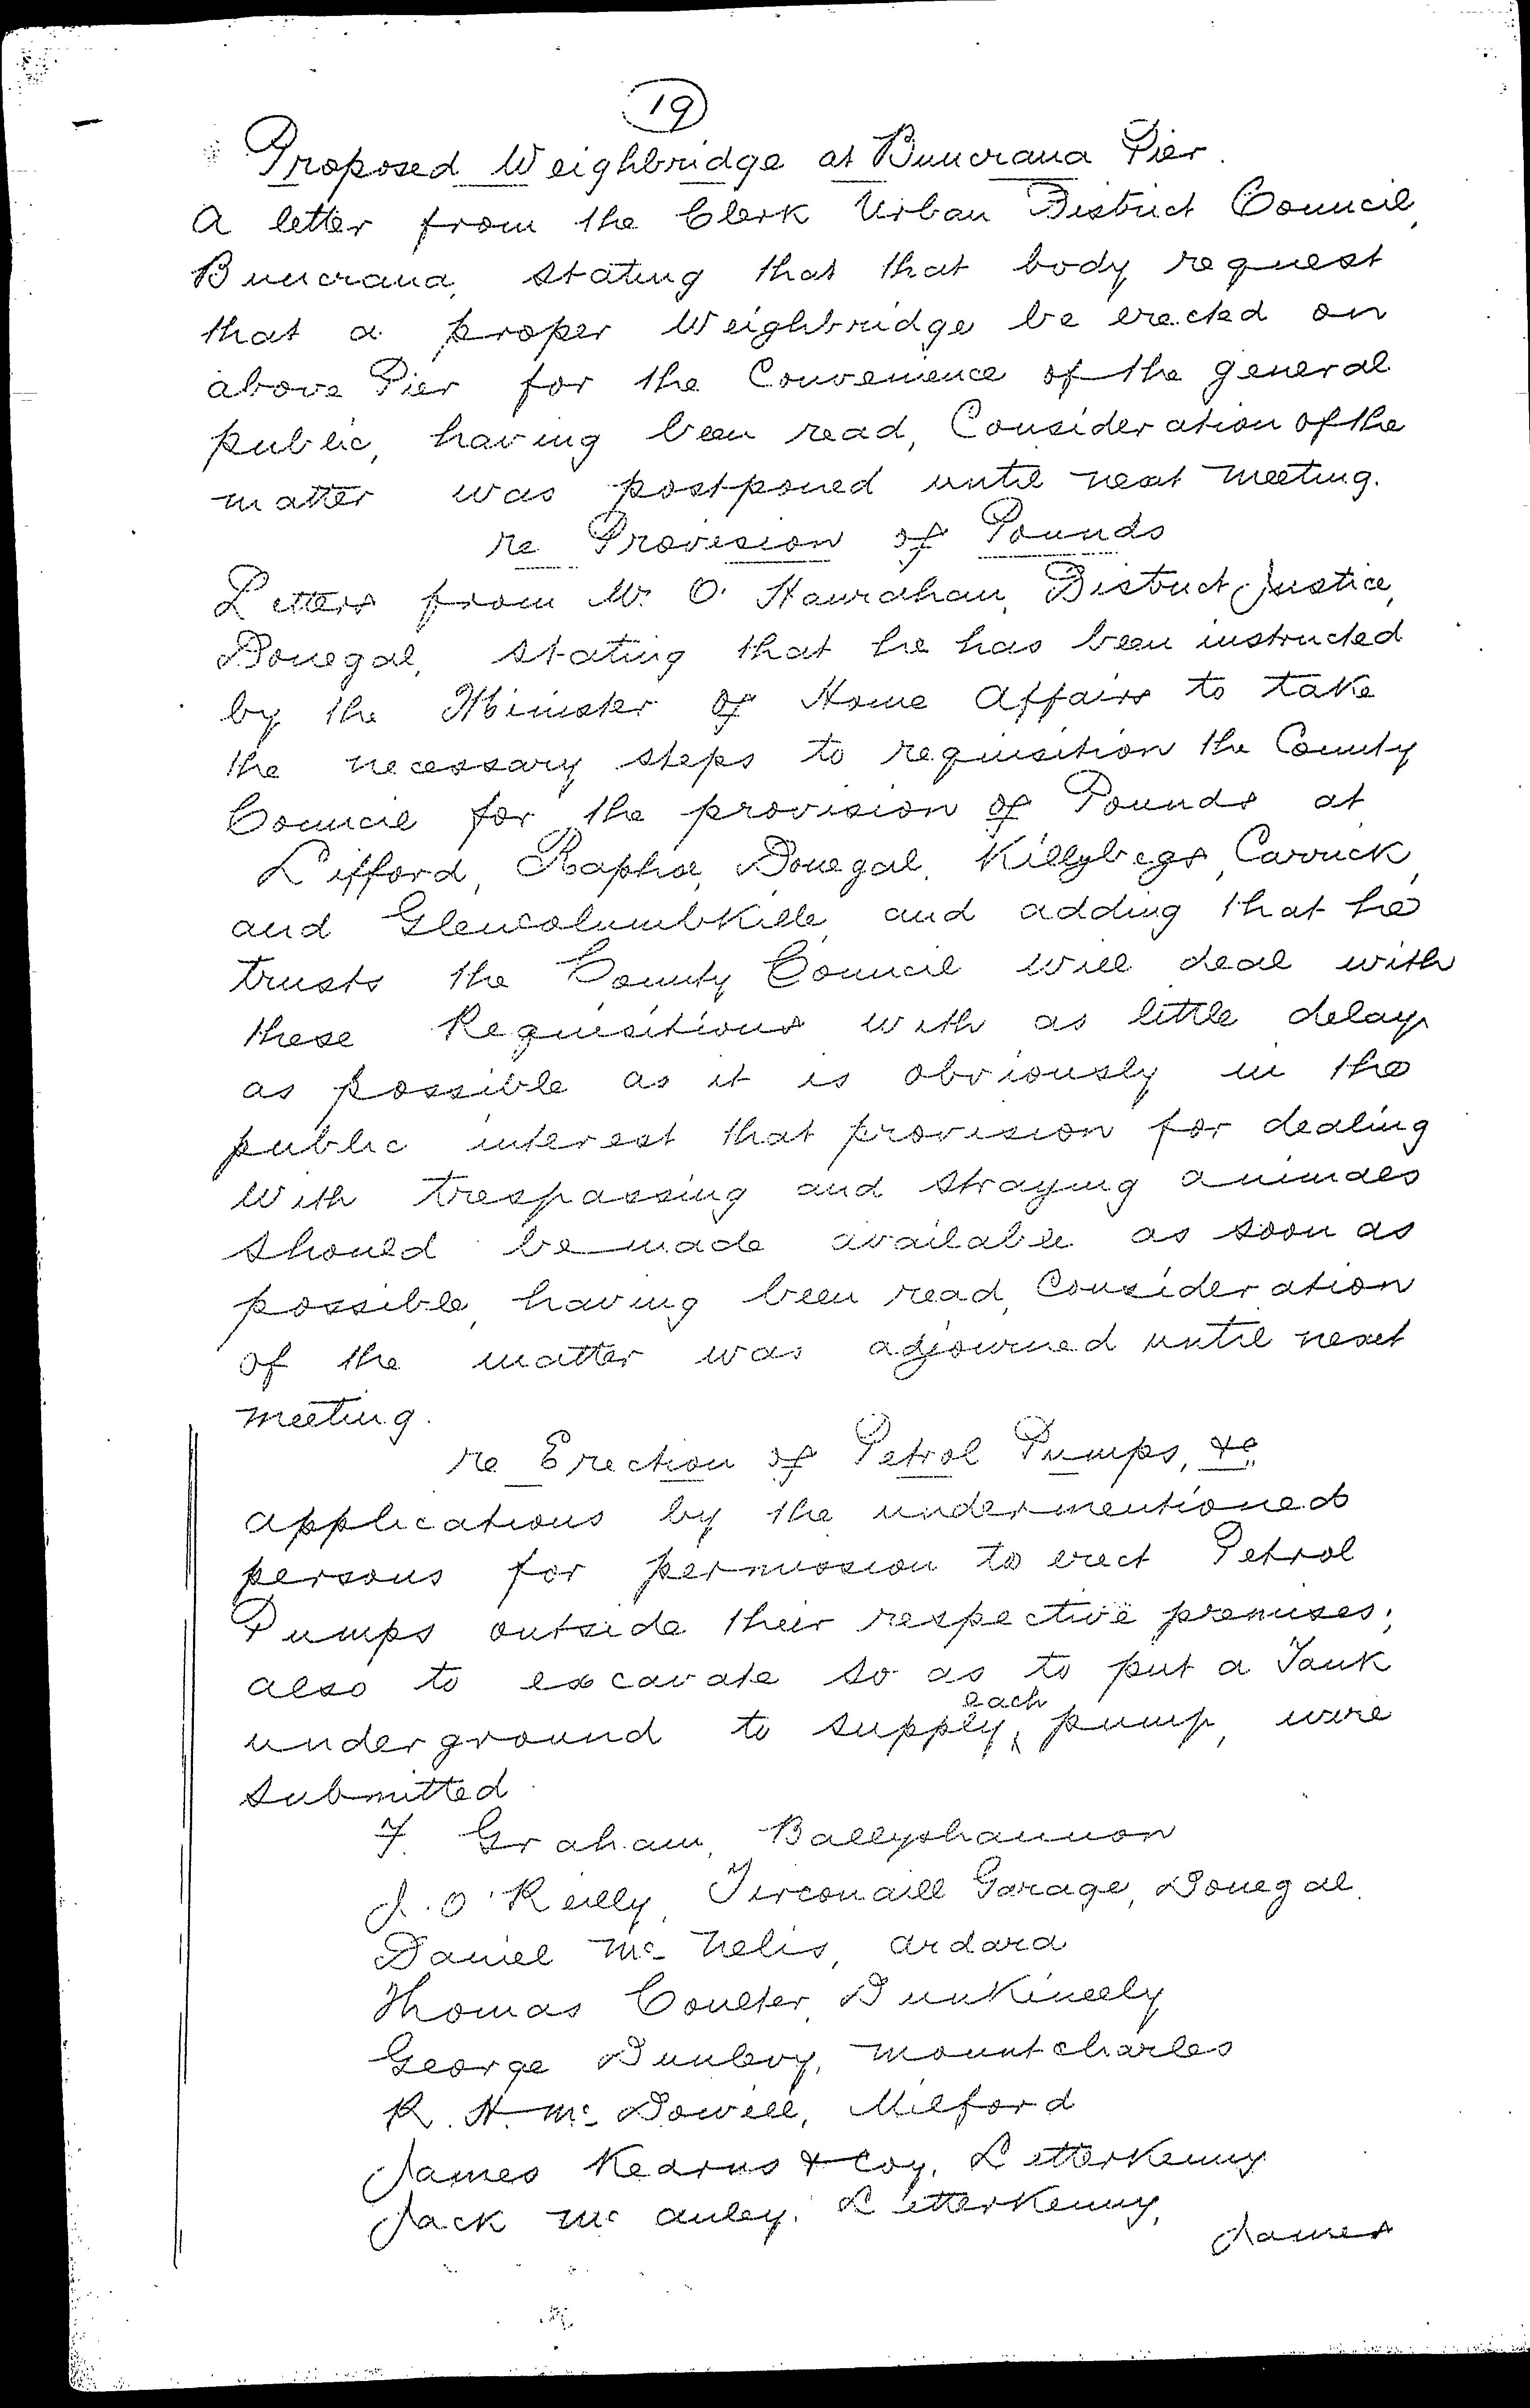 19
Proposed Weighbridge at Buncrana Pier.
A letter from the Clerk Urban District Council,
Buncrana, stating that that body request
that a proper Weighbridge be erected on
above Pier for the Convenience of the general
public, having been read, Consideration of the
matter was postponed until next meeting.
re Provision of Pounds
Letters from Mr. O'Hanrahan, District Justice,
Donegal, stating that he has been instructed
by the Minister of Home Affairs to take
the necessary steps to requisition the County
Council for the provision of Pounds at
Lifford, Raphoe, Donegal, Killybegs, Carrick,
and Glencolumbkille, and adding that he
trusts the County Council will deal with
these Requisitions with as little delay
as possible as it is obviously in the
public interest that provision for dealing
with trespassing and straying animals
should be made available as soon as
possible, having been read, Consideration
of the matter was adjourned until next
meeting.
re Erection of Petrol Pumps, &c.
Applications by the undermentioned
persons for permission to erect Petrol
Pumps outside their respective premises;
also to excavate so as to put a Tank
underground to supply each pump, were
submitted.
F. Graham, Ballyshannon
J. O'Reilly, Tirconaill Garage, Donegal.
Daniel McNelis, Ardara
Thomas Coulter, Dunkineely
George Dunlevy, Mountcharles
R. H. McDowell, Milford
James Kearns & Coy, Letterkenny
Jack McAuley, Letterkenny,
James